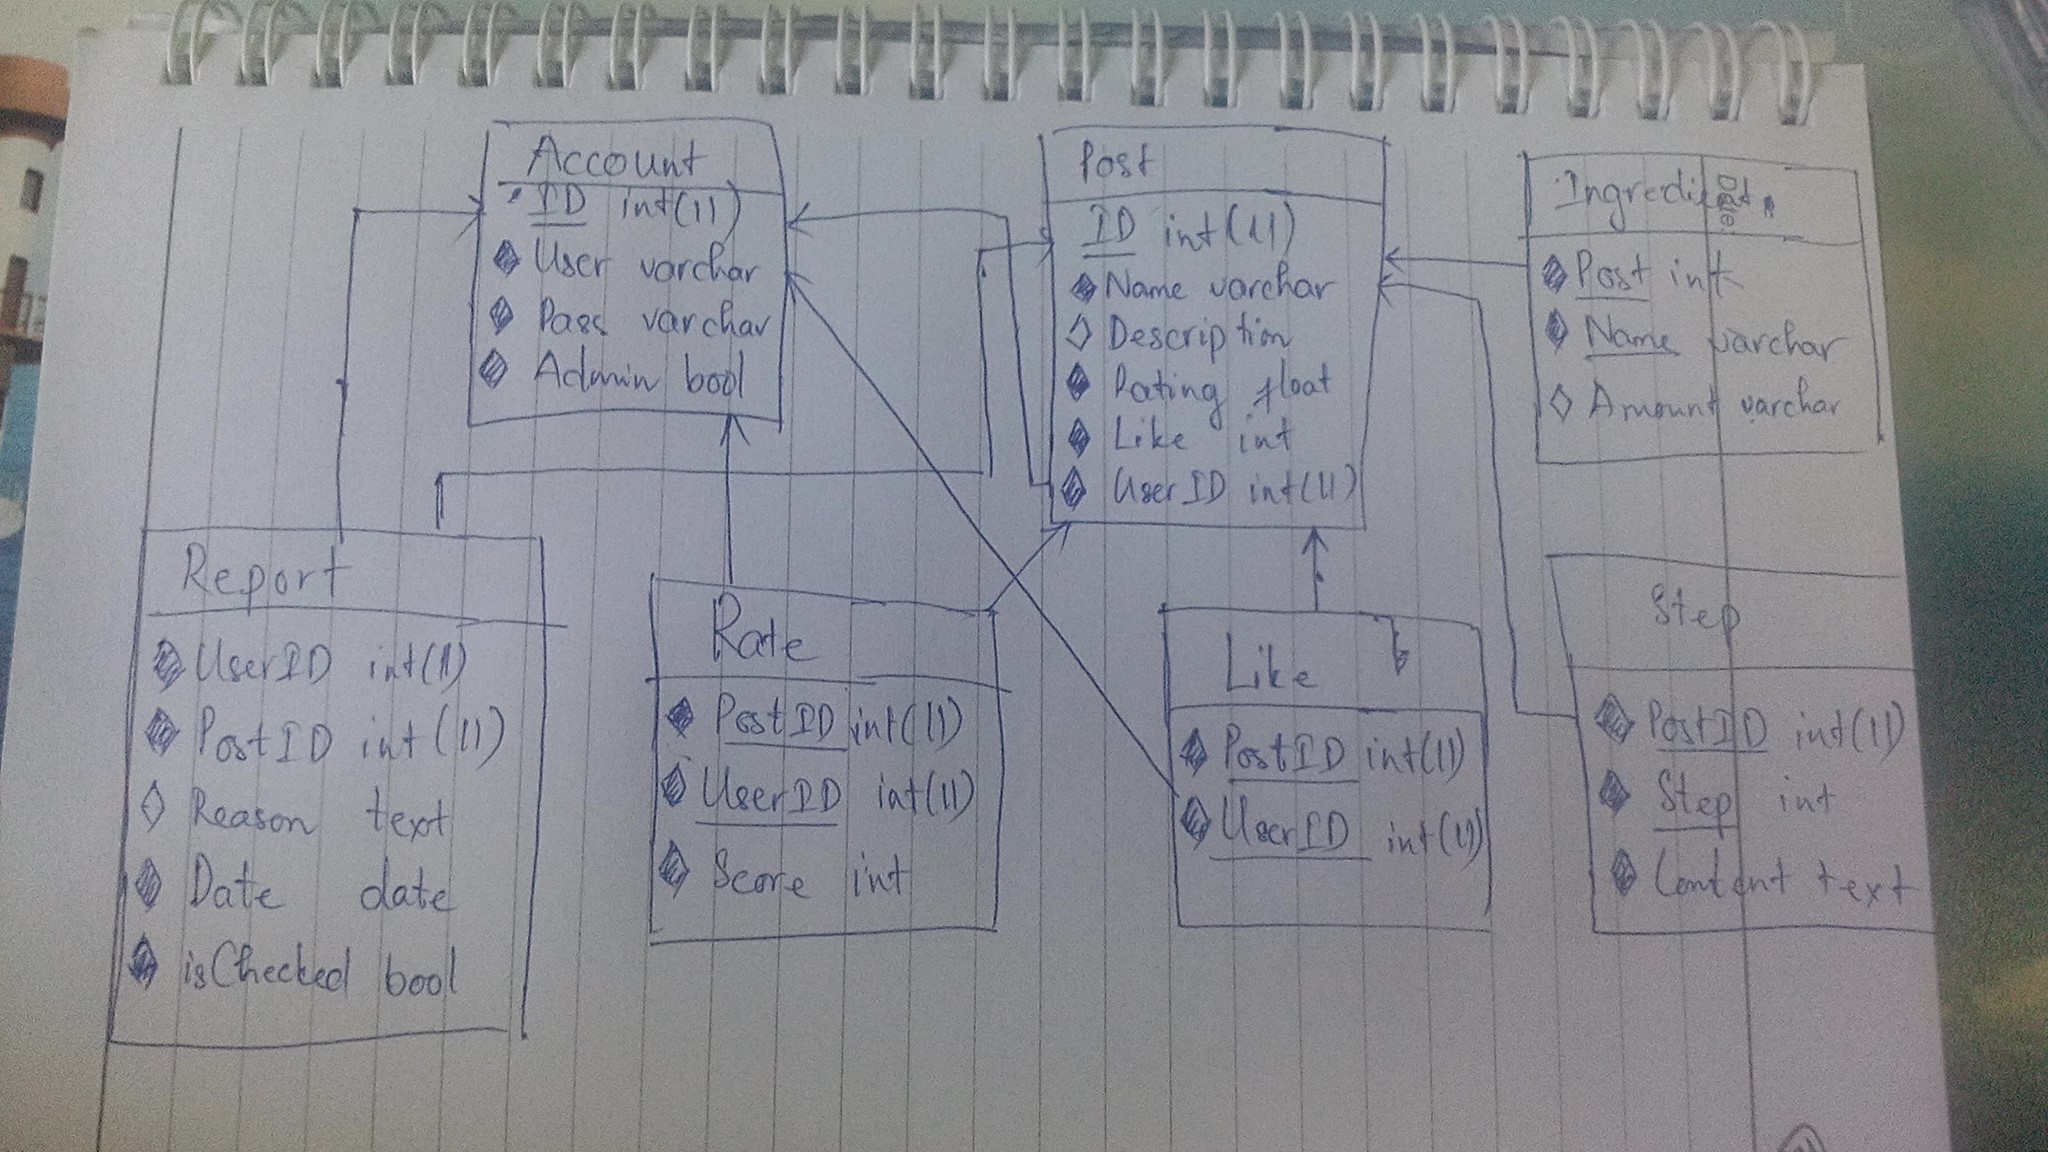 Account
ID int(11)
User varchar
Pass varchar
Admin bool
Post
ID int(11)
Name varchar
Description
Rating float
Like int
UserID int(11)
Ingredient
Post int
Name varchar
Amount varchar
Report
UserID int(11)
PostID int(11)
Reason text
Date date
isChecked bool
Rate
PostID int(11)
UserID int(11)
Score int
Like
PostID int(11)
UserID int(11)
Step
PostID int(11)
Step int
Content text